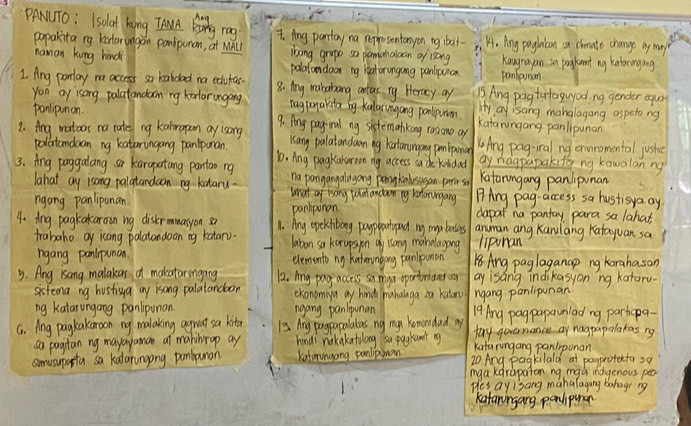 PANUTO: Isulat kung TAMA Ang kung nag
papakita ng katarungan panlipunan, at MALI
naman kung hindi
1. Ang pantay na access sa kalidad na edukas-
yon ay isang palatandaan ng katarungang
panlipunan.
2. Ang mataas na rate ng kahirapan ay isang
palatandaan ng katarungang panlipunan.
3. Ang paggalang sa karapatang pantao ng
lahat ay isang palatandaan ng kataru-
ngang panlipunan.
4. Ang pagkakaroon ng diskriminasyon sa
trabaho ay isang palatandaan ng kataru-
ngang panlipunan.
5. Ang isang malakas at makatarungang
sistema ng hustisya ay isang palatandaan
ng katarungang panlipunan.
6. Ang pagkakaroon ng malaking agwat sa kita
sa pagitan ng mayayaman at mahihirap ay
sumusuporta sa katarungang panlipunan.
7. Ang pantay na representasyon ng iba't-
ibang grupo sa pamahalaan ay isang
palatandaan ng katarungang panlipunan.
8. Ang mababang antas ng literacy ay
nagpapakita ng katarungang panlipunan.
9. Ang pag-iral ng sistematikong rasismo ay
isang palatandaan ng katarungang panlipunan
10. Ang pagkakaroon ng access sa de kalidad
na pangangalagang pangkalusugan para sa
lahat ay isang palatandaan ng katarungang
panlipunan.
11. Ang epektibong pagpapatupad ng mga batas
laban sa korupsyon ay isang mahalagang
elemento ng katarungang panlipunan.
12. Ang pag access sa mga oportunidad sa
ekonomiya ay hindi mahalaga sa kataru-
ngang panlipunan
13. Ang pagpapalakas ng mga komunidad ay
hindi nakakatulong sa pagkamit ng
katarungang panlipunan
14. Ang paglaban sa climate change ay may
kaugnayan sa pagkamit ng katarungang
panlipunan.
15 Ang pagtataguyod ng gender equa-
lity ay isang mahalagang aspeto ng
katarungang panlipunan
16 Ang pag-iral ng enviromental justice
ay nagpapakita ng kawalan ng
katarungang panlipunan
17 Ang pag-access sa hustisya ay
dapat na pantay para sa lahat
anuman ang kanilang katayuan sa
lipunan
18. Ang paglaganap ng karahasan
ay isang indikasyon ng kataru-
ngang panlipunan
19 Ang pagpapaunlad ng participa-
tory governance ay nagpapalakas ng
katarungang panlipunan
20 Ang pagkilala at pagprotekta sa
mga karapatan ng mga indigenous peo-
ples ay isang mahalagang bahagi ng
katarungang panlipunan